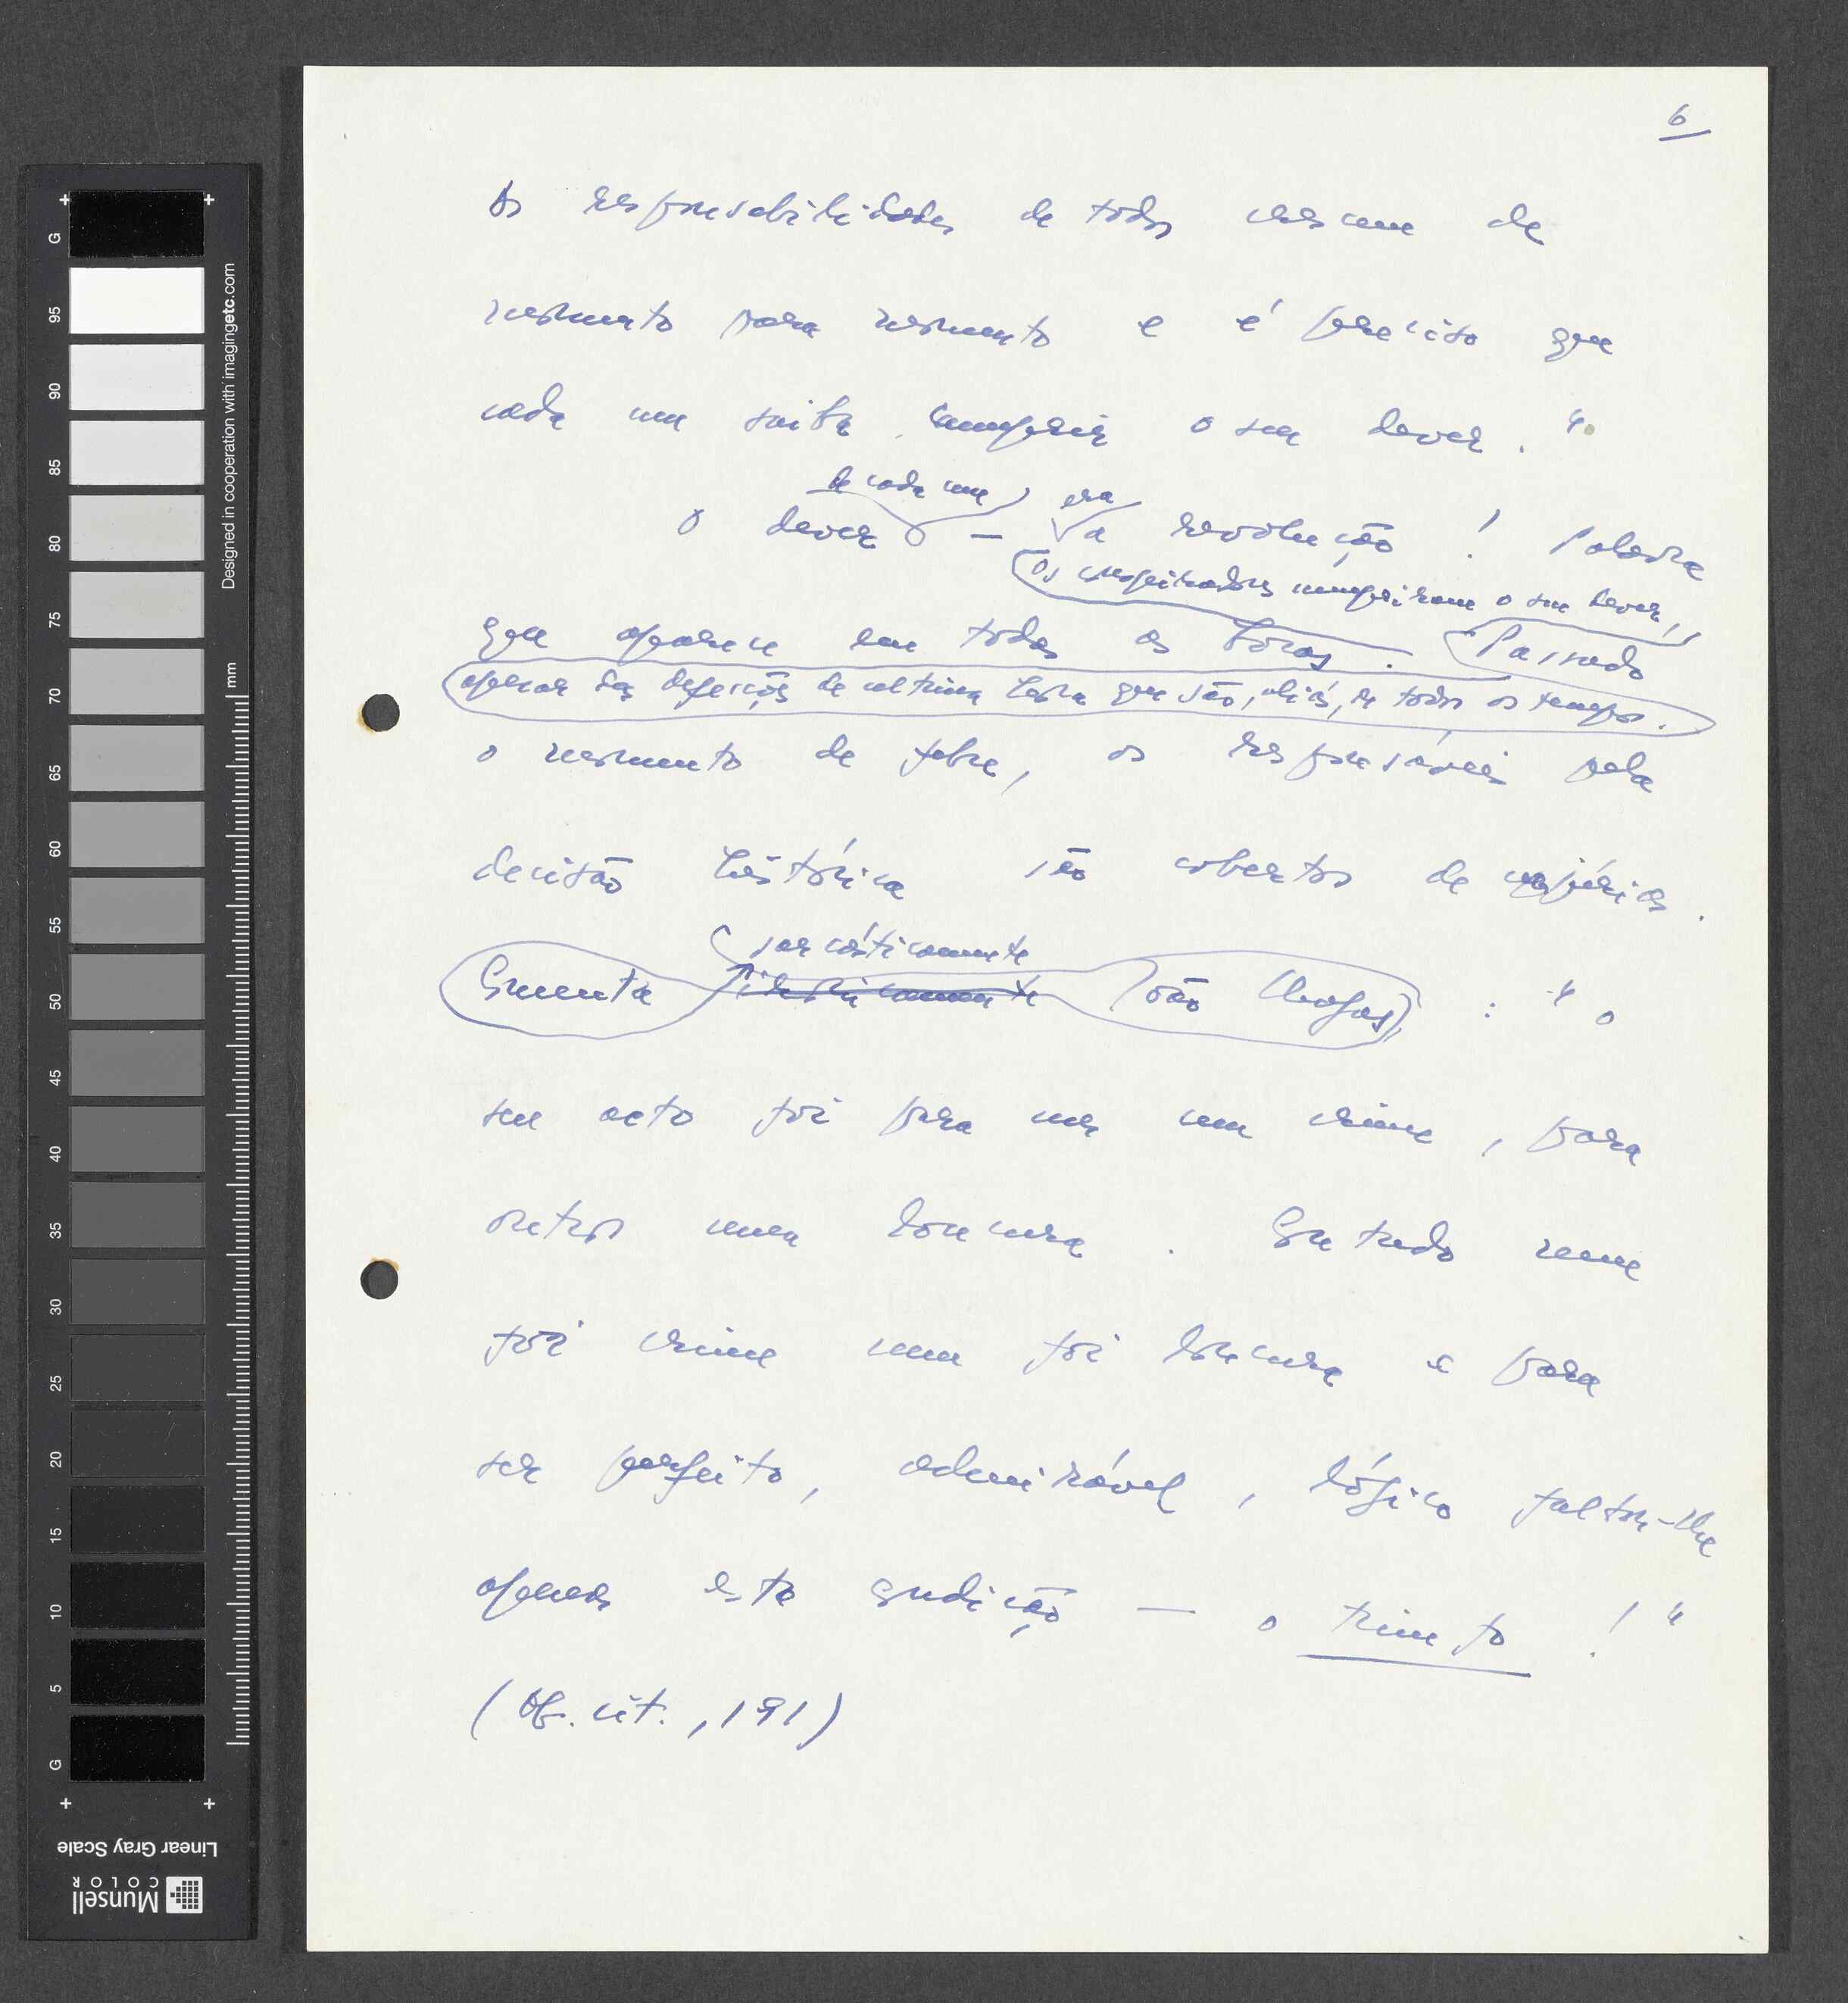 6
As responsabilidades de todos crescem de
momento para momento e é preciso que
cada um saiba cumprir o seu dever."
de cada um era
O dever — a revolução! Palavra
Os conspiradores cumpriram o seu dever,
que aparece em todas as bocas. Passado
apesar das defecções de última hora que são, aliás, de todos os tempos.
o momento de febre, os responsáveis pela
decisão histórica são cobertos de injúrias.
sarcàsticamente
Comenta João Chagas: "O
seu acto foi para uns um crime, para
outros uma loucura. Contudo nem
foi crime nem foi loucura e para
ser perfeito, admirável, lógico faltou-lhe
apenas esta condição — o triunfo!"
(Ob. cit., 191)
G
95
90
85
80
75
70
65
60
55
50
45
40
35
30
25
20
15
10
5
G
mm
Designed in cooperation with imagingetc.com
Linear Gray Scale
Munsell
COLOR